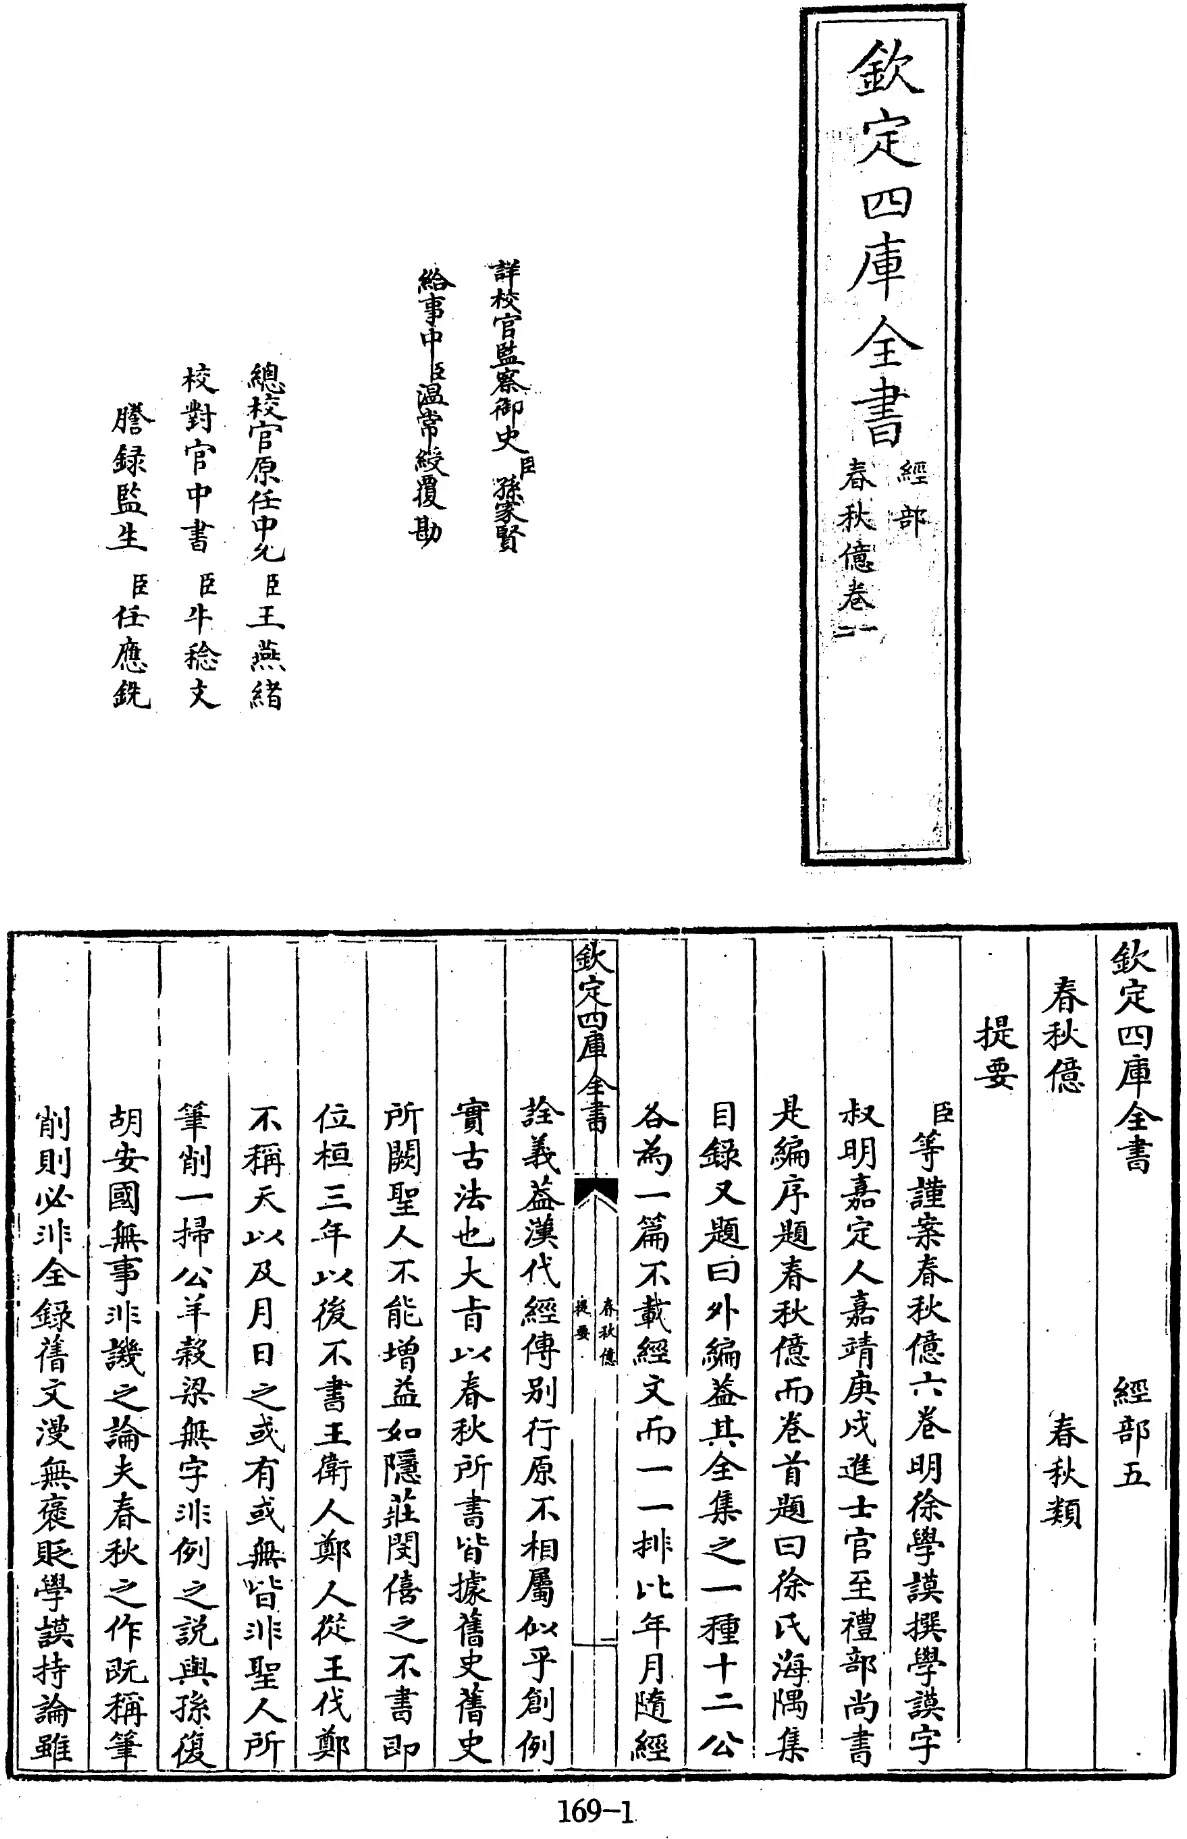 欽定四庫全書
經部
春秋億卷一二
詳校官監察御史臣孫家賢
給事中臣温常綬覆勘
總校官原任中允臣王燕緒
校對官中書臣牛稔文
謄録監生臣任應銑
欽定四庫全書 經部五
春秋億 春秋類
提要
臣等謹案春秋億六卷明徐學謨撰學謨字
叔明嘉定人嘉靖庚戌進士官至禮部尚書
是編序題春秋億而卷首題曰徐氏海隅集
目録又題曰外編葢其全集之一種十二公
各為一篇不載經文而一一排比年月隨經
欽定四庫全書
春秋億
提要
詮義葢漢代經傳別行原不相屬似乎創例
實古法也大旨以春秋所書皆據舊史舊史
所闕聖人不能增益如隱莊閔僖之不書即
位桓三年以後不書王衛人鄭人從王伐鄭
不稱天以及月日之或有或無皆非聖人所
筆削一掃公羊穀梁無字非例之説與孫復
胡安國無事非譏之論夫春秋之作既稱筆
削則必非全録舊文漫無褒貶學謨持論雖
169-1